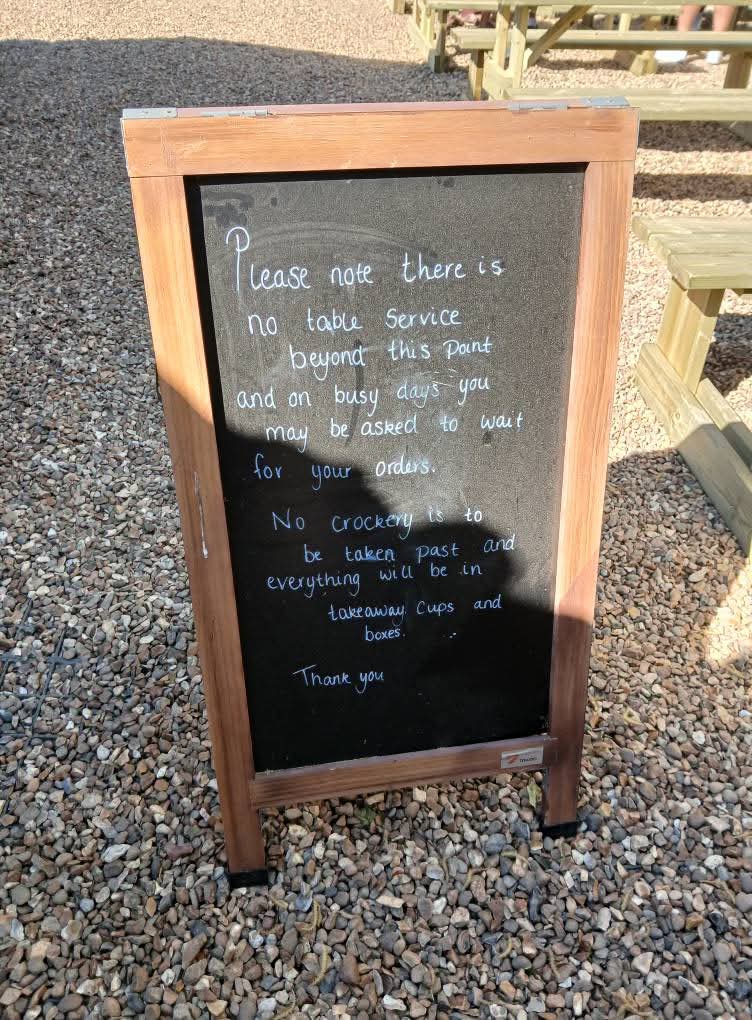 Please note there is
no table Service
beyond this Point
and on busy days you
may be asked to wait
for your orders.
No crockery is to
be taken past and
everything will be in
takeaway cups and
boxes.
Thank you